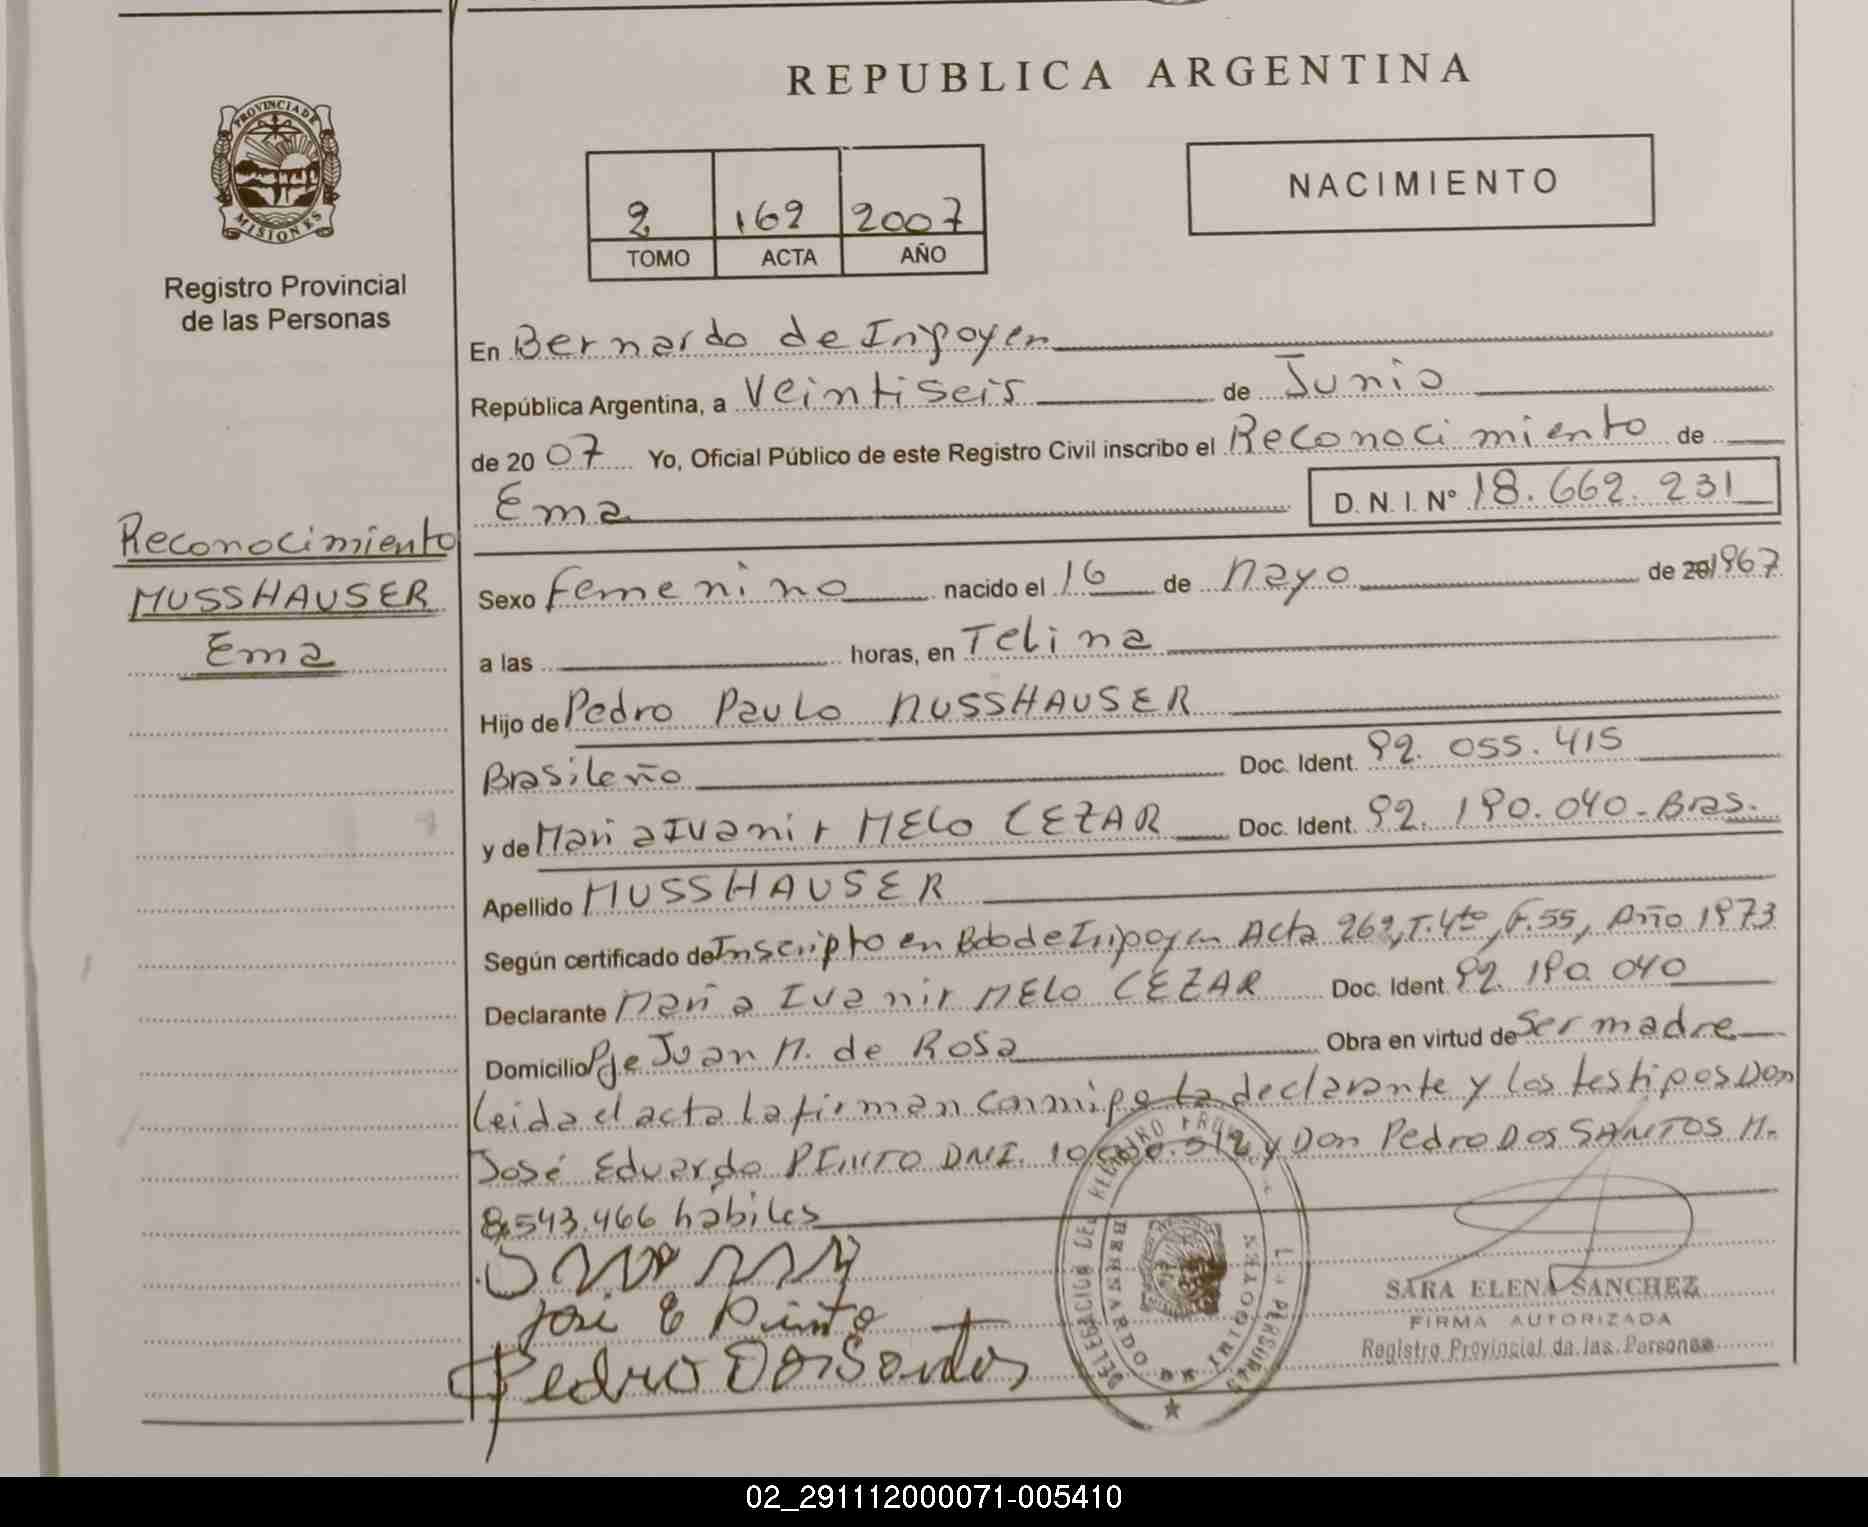 REPUBLICA ARGENTINA
PROVINCIA DE
MISIONES
Registro Provincial
de las Personas
2 162 2007
TOMO ACTA AÑO
NACIMIENTO
En Bernardo de Irigoyen
República Argentina, a Veintiseis de Junio
de 2007 Yo, Oficial Público de este Registro Civil inscribo el Reconocimiento de
Ema D. N. I. Nº 18.662.231
Reconocimiento
MUSSHAUSER
Ema
Sexo Femenino nacido el 16 de Mayo de 1967
a las horas, en Telina
Hijo de Pedro Paulo MUSSHAUSER
Brasileño Doc. Ident. 92.055.415
y de Maria Ivanir MELO CEZAR Doc. Ident. 92.190.040-Bras.
Apellido MUSSHAUSER
Según certificado de Inscripto en Bdo de Irigoyen Acta 262, T.4to, F.55, Año 1973
Declarante Maria Ivanir MELO CEZAR Doc. Ident. 92.190.040
Domicilio Pje Juan M. de Rosa Obra en virtud de Ser madre
Leida el acta la firman conmigo la declarante y los testigos Don
José Eduardo PINTO DNI. y Don Pedro Dos SANTOS M.
8.543.466 habiles
José E Pinto
Pedro Dos Santos
DELEGACION DEL REGISTRO
BERNARDO IRIGOYEN
SARA ELENA SANCHEZ
FIRMA AUTORIZADA
Registro Provincial de las Personas
02_291112000071-005410